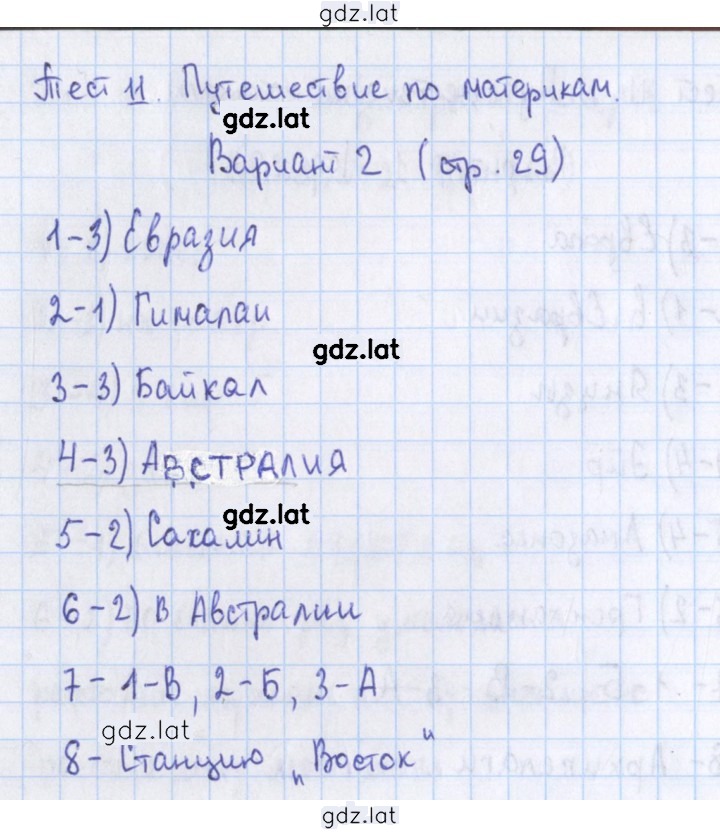 gdz.lat
Тест 11. Путешествие по материкам.
gdz.lat
Вариант 2 (стр. 29)
1-3) Евразия
2-1) Гималаи
gdz.lat
3-3) Байкал
4-3) АВСТРАЛИЯ
gdz.lat
5-2) Сахалин
6-2) В Австралии
7- 1-В, 2-Б, 3-А
gdz.lat
8- Станцию „Восток"
gdz.lat